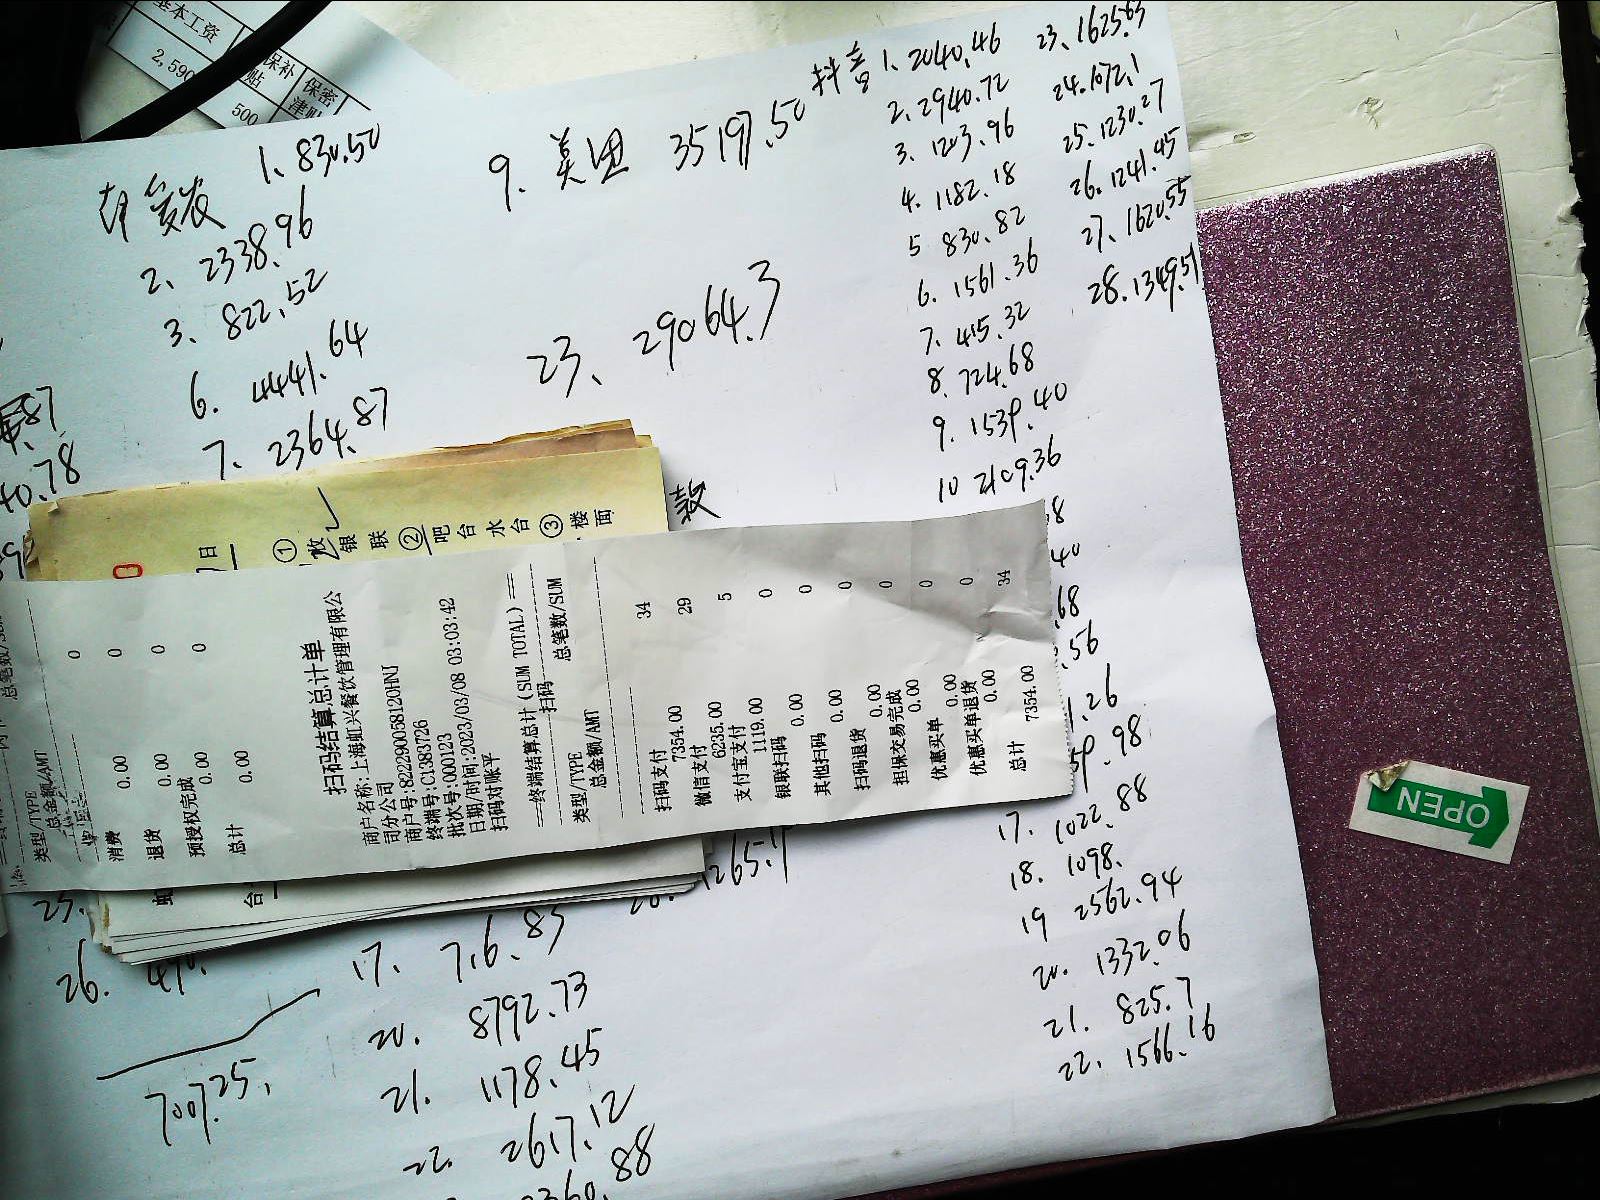 基本工资
2,590
500
保补
贴
保密
津贴
1. 830.50
2. 2338.96
3. 822.52
6. 4441.64
7. 2364.87
9. 美团 3519.50
23. 29064.3
抖音 1. 2040.46
2. 2940.72
3. 1203.96
4. 1182.18
5 830.82
6. 1561.36
7. 415.32
8. 724.68
9. 1539.40
10 2109.36
17. 1022.88
18. 1098.
19 2562.94
20. 1332.06
21. 825.7
22. 1566.16
23. 1625.63
24. 1072.1
25. 1230.27
26. 1241.45
27. 1620.55
28. 1349.51
款
日
①
银联
②
吧台水台
③
楼面
类型/TYPE
总金额/AMT
0
消费 0
0.00
退货 0
0.00
预授权完成 0
0.00
总计
0.00
扫码结算总计单
商户名称:上海虹兴餐饮管理有限公
司分公司
商户号:822290058120HNJ
终端号:C1383726
批次号:000123
日期/时间:2023/03/08 03:03:42
扫码对账平
==终端结算总计(SUM TOTAL)==
扫码
类型/TYPE 总笔数/SUM
总金额/AMT
扫码支付 34
7354.00
微信支付 29
6235.00
支付宝支付 5
1119.00
银联扫码 0
0.00
其他扫码 0
0.00
扫码退货 0
0.00
担保交易完成 0
0.00
优惠买单 0
0.00
优惠买单退货 0
0.00
总计 34
7354.00
26.
17. 716.83
20. 8792.73
21. 1178.45
22. 2617.12
7007.25
OPEN